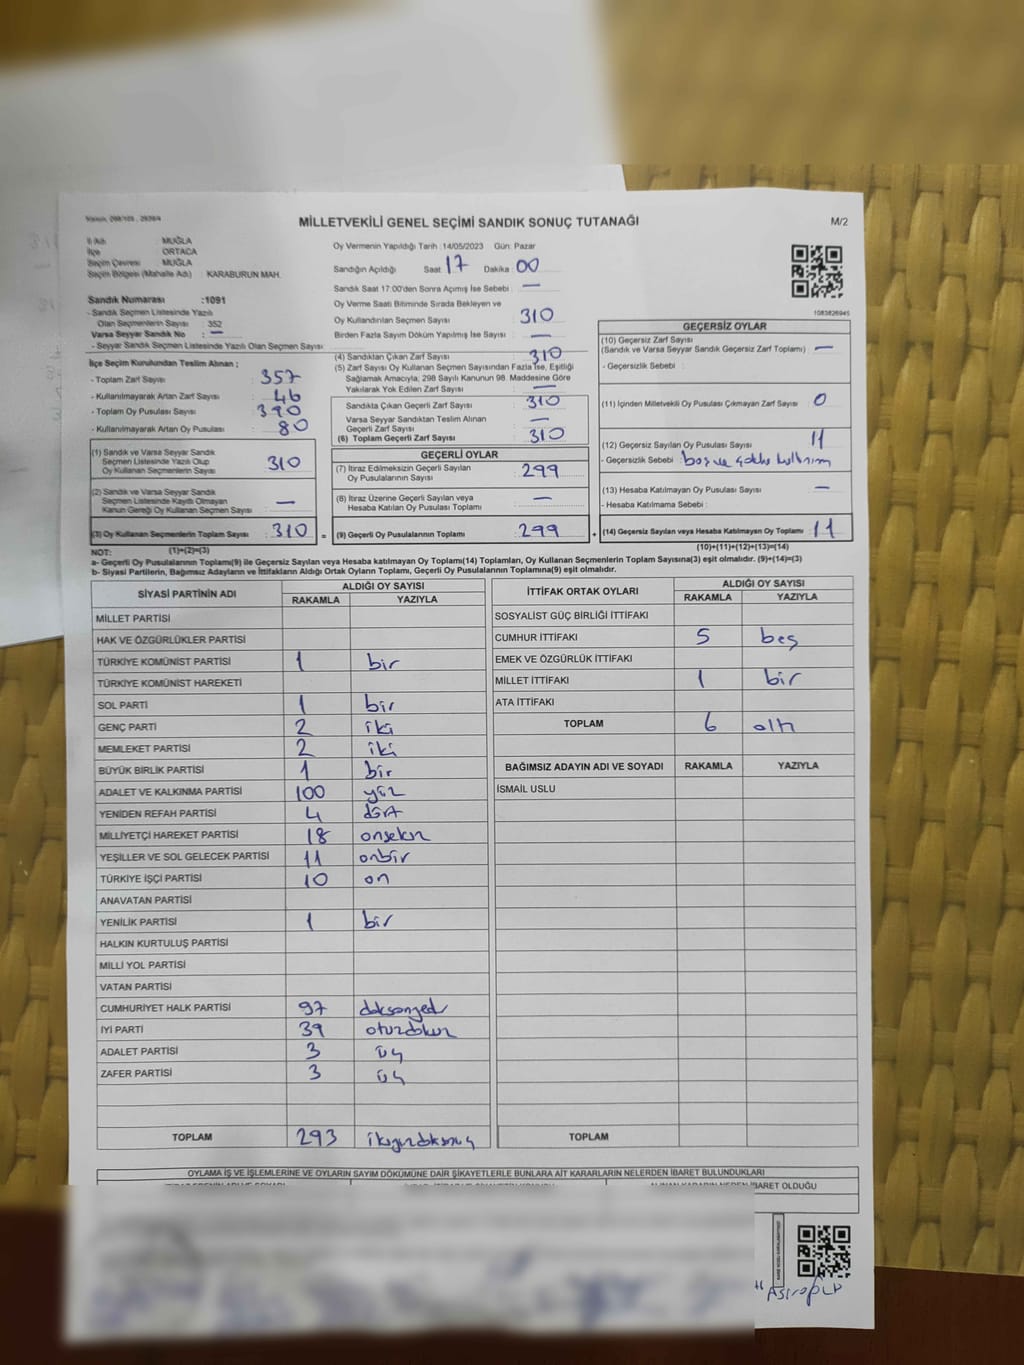 MİLLETVEKİLİ GENEL SEÇİMİ SANDIK SONUÇ TUTANAĞI
M/2
İl Adı : MUĞLA
İlçe : ORTACA
Seçim Çevresi : MUĞLA
Seçim Bölgesi (Mahalle Adı) : KARABURUN MAH.
Sandık Numarası :1091
- Sandık Seçmen Listesinde Yazılı
Olan Seçmenlerin Sayısı : 352
Varsa Seyyar Sandık No : —
- Seyyar Sandık Seçmen Listesinde Yazılı Olan Seçmen Sayısı :
İlçe Seçim Kurulundan Teslim Alınan ;
- Toplam Zarf Sayısı : 357
- Kullanılmayarak Artan Zarf Sayısı : 46
- Toplam Oy Pusulası Sayısı : 390
- Kullanılmayarak Artan Oy Pusulası : 80
(1) Sandık ve Varsa Seyyar Sandık
Seçmen Listesinde Yazılı Olup
Oy Kullanan Seçmenlerin Sayısı : 310
(2) Sandık ve Varsa Seyyar Sandık
Seçmen Listesinde Kayıtlı Olmayan
Kanun Gereği Oy Kullanan Seçmen Sayısı : —
(3) Oy Kullanan Seçmenlerin Toplam Sayısı : 310 =
Oy Vermenin Yapıldığı Tarih :14/05/2023 Gün: Pazar
Sandığın Açıldığı Saat :17 Dakika :00
Sandık Saat 17:00'den Sonra Açımış İse Sebebi : —
Oy Verme Saati Bitiminde Sırada Bekleyen ve
Oy Kullandırılan Seçmen Sayısı : 310
Birden Fazla Sayım Döküm Yapılmış İse Sayısı : —
(4) Sandıktan Çıkan Zarf Sayısı : 310
(5) Zarf Sayısı Oy Kullanan Seçmen Sayısından Fazla İse, Eşitliği
Sağlamak Amacıyla; 298 Sayılı Kanunun 98. Maddesine Göre
Yakılarak Yok Edilen Zarf Sayısı : —
Sandıkta Çıkan Geçerli Zarf Sayısı : 310
Varsa Seyyar Sandıktan Teslim Alınan
Geçerli Zarf Sayısı : —
(6) Toplam Geçerli Zarf Sayısı : 310
GEÇERLİ OYLAR
(7) İtiraz Edilmeksizin Geçerli Sayılan
Oy Pusulalarının Sayısı : 299
(8) İtiraz Üzerine Geçerli Sayılan veya
Hesaba Katılan Oy Pusulası Toplamı : —
(9) Geçerli Oy Pusulalarının Toplamı : 299 +
1083826945
GEÇERSİZ OYLAR
(10) Geçersiz Zarf Sayısı
(Sandık ve Varsa Seyyar Sandık Geçersiz Zarf Toplamı) : —
- Geçersizlik Sebebi :
(11) İçinden Milletvekili Oy Pusulası Çıkmayan Zarf Sayısı : 0
(12) Geçersiz Sayılan Oy Pusulası Sayısı : 11
- Geçersizlik Sebebi : boş ve çoklu kullanım
(13) Hesaba Katılmayan Oy Pusulası Sayısı : —
- Hesaba Katılmama Sebebi :
(14) Geçersiz Sayılan veya Hesaba Katılmayan Oy Toplamı : 11
NOT: (1)+(2)=(3) (10)+(11)+(12)+(13)=(14)
a- Geçerli Oy Pusulalarının Toplamı(9) ile Geçersiz Sayılan veya Hesaba katılmayan Oy Toplamı(14) Toplamları, Oy Kullanan Seçmenlerin Toplam Sayısına(3) eşit olmalıdır. (9)+(14)=(3)
b- Siyasi Partilerin, Bağımsız Adayların ve İttifakların Aldığı Ortak Oyların Toplamı, Geçerli Oy Pusulalarının Toplamına(9) eşit olmalıdır.
SİYASİ PARTİNİN ADI ALDIĞI OY SAYISI
RAKAMLA YAZIYLA
MİLLET PARTİSİ
HAK VE ÖZGÜRLÜKLER PARTİSİ
TÜRKİYE KOMÜNİST PARTİSİ 1 bir
TÜRKİYE KOMÜNİST HAREKETİ
SOL PARTİ 1 bir
GENÇ PARTİ 2 iki
MEMLEKET PARTİSİ 2 iki
BÜYÜK BİRLİK PARTİSİ 1 bir
ADALET VE KALKINMA PARTİSİ 100 yüz
YENİDEN REFAH PARTİSİ 4 dört
MİLLİYETÇİ HAREKET PARTİSİ 18 onsekiz
YEŞİLLER VE SOL GELECEK PARTİSİ 11 onbir
TÜRKİYE İŞÇİ PARTİSİ 10 on
ANAVATAN PARTİSİ
YENİLİK PARTİSİ 1 bir
HALKIN KURTULUŞ PARTİSİ
MİLLİ YOL PARTİSİ
VATAN PARTİSİ
CUMHURİYET HALK PARTİSİ 97 doksanyedi
İYİ PARTİ 39 otuzdokuz
ADALET PARTİSİ 3 üç
ZAFER PARTİSİ 3 üç
TOPLAM 293 ikiyüzdoksanüç
İTTİFAK ORTAK OYLARI ALDIĞI OY SAYISI
RAKAMLA YAZIYLA
SOSYALİST GÜÇ BİRLİĞİ İTTİFAKI
CUMHUR İTTİFAKI 5 beş
EMEK VE ÖZGÜRLÜK İTTİFAKI
MİLLET İTTİFAKI 1 bir
ATA İTTİFAKI
TOPLAM 6 altı
BAĞIMSIZ ADAYIN ADI VE SOYADI RAKAMLA YAZIYLA
İSMAİL USLU
TOPLAM
OYLAMA İŞ VE İŞLEMLERİNE VE OYLARIN SAYIM DÖKÜMÜNE DAİR ŞİKAYETLERLE BUNLARA AİT KARARLARIN NELERDEN İBARET BULUNDUKLARI